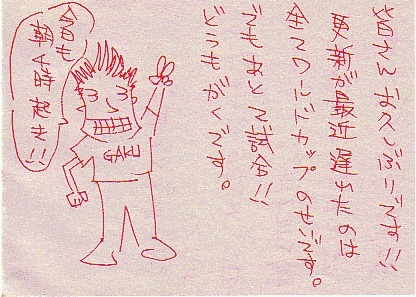 皆さんお久しぶりです!!
更新が最近遅れたのは
全てワールドカップのせいです。
でもあと2試合!!
どうもがくです。
今日も
朝4時起き!!
GAKU